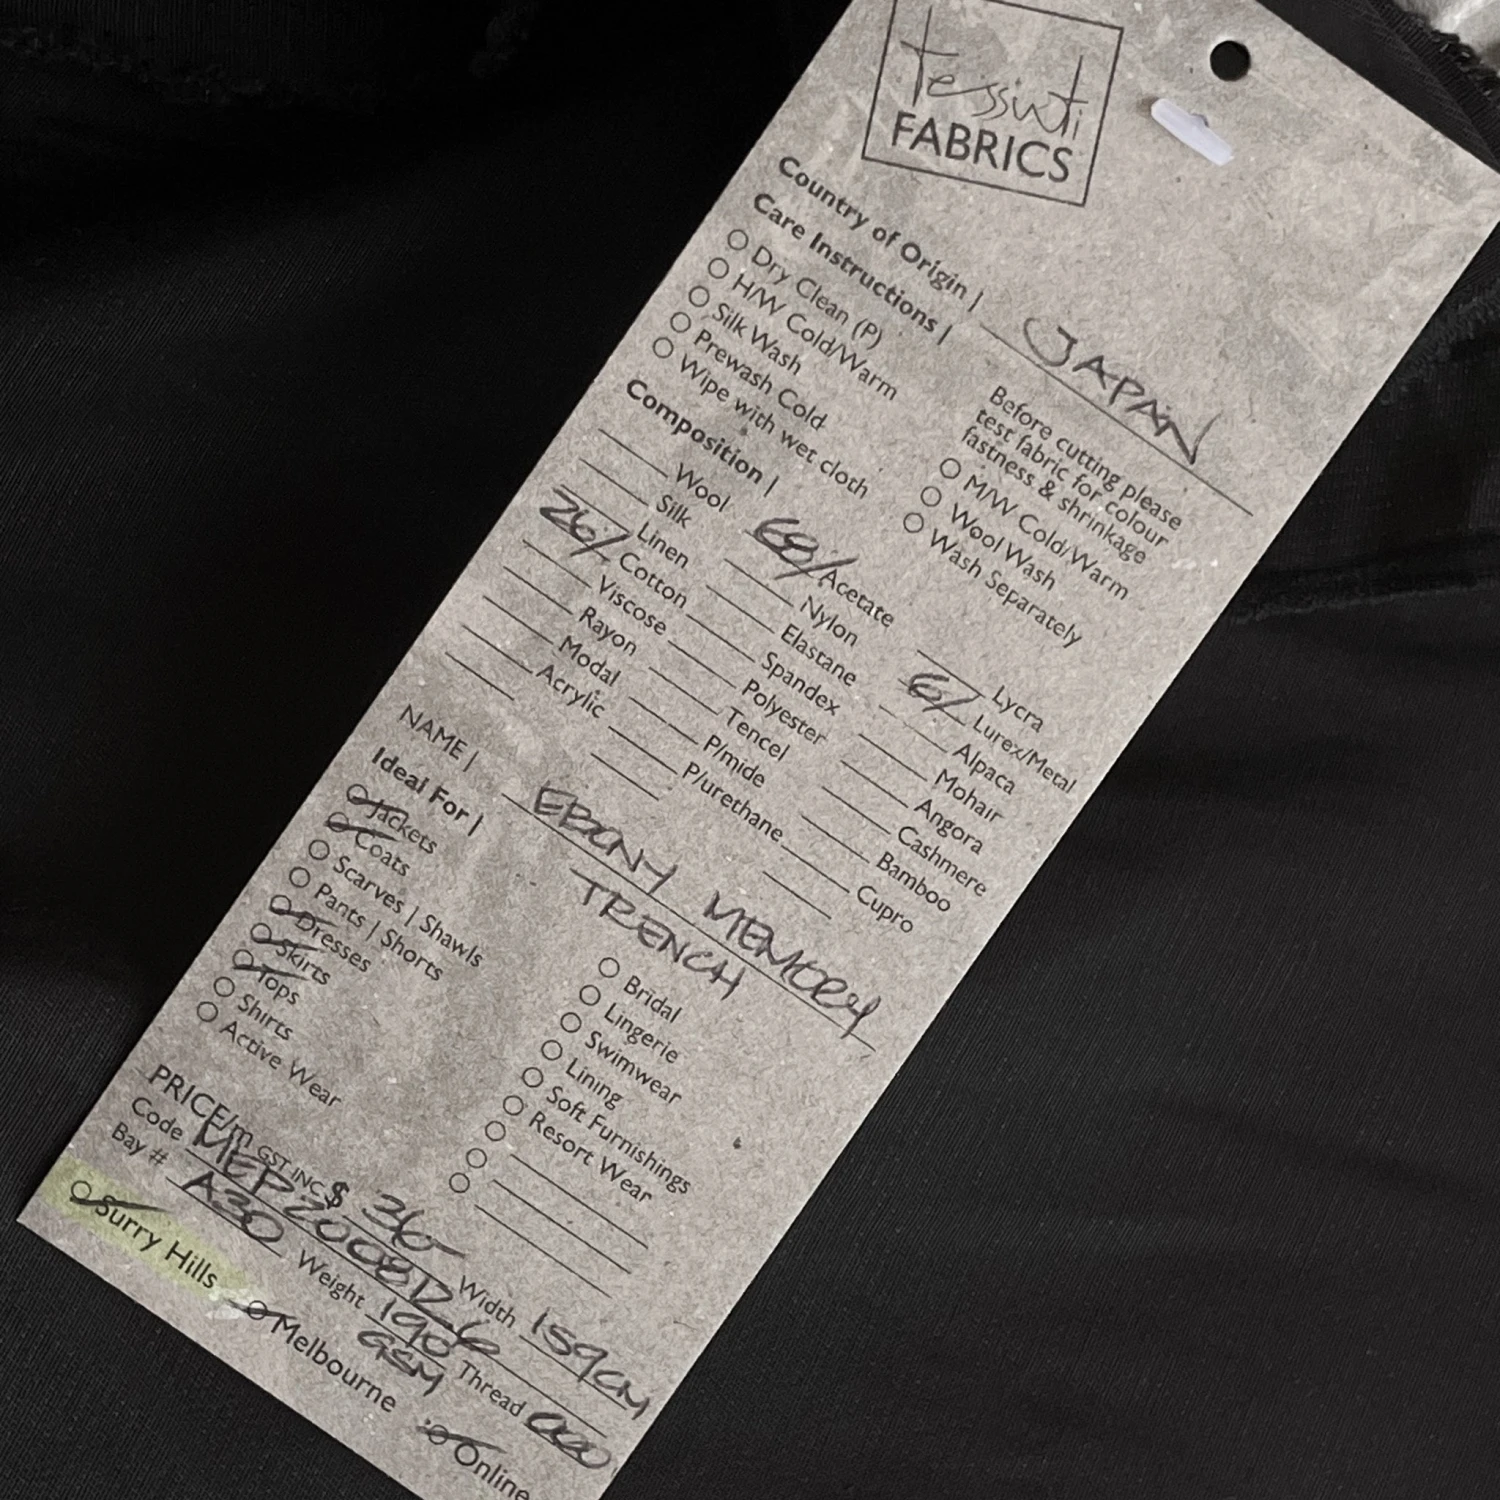 tessuti
FABRICS
Country of Origin | JAPAN
Care Instructions |
Before cutting please
test fabric for colour
fastness & shrinkage
Dry Clean (P)
H/W Cold/Warm
Silk Wash
Prewash Cold
Wipe with wet cloth
M/W Cold/Warm
Wool Wash
Wash Separately
Composition |
Wool
Silk
Linen
26% Cotton
Viscose
Rayon
Modal
Acrylic
68% Acetate
Nylon
Elastane
Spandex
Polyester
Tencel
P/mide
P/urethane
Lycra
6% Lurex/Metal
Alpaca
Mohair
Angora
Cashmere
Bamboo
Cupro
NAME | EBONY MEMORY
TRENCH
Ideal For |
Jackets
Coats
Scarves | Shawls
Pants | Shorts
Dresses
Skirts
Tops
Shirts
Active Wear
Bridal
Lingerie
Swimwear
Lining
Soft Furnishings
Resort Wear
PRICE/m GST INC $ 36-
Code MEP200812.6 Width 159CM
Bay # A30 Weight 190 GSM Thread 000
Surry Hills
Melbourne
Online